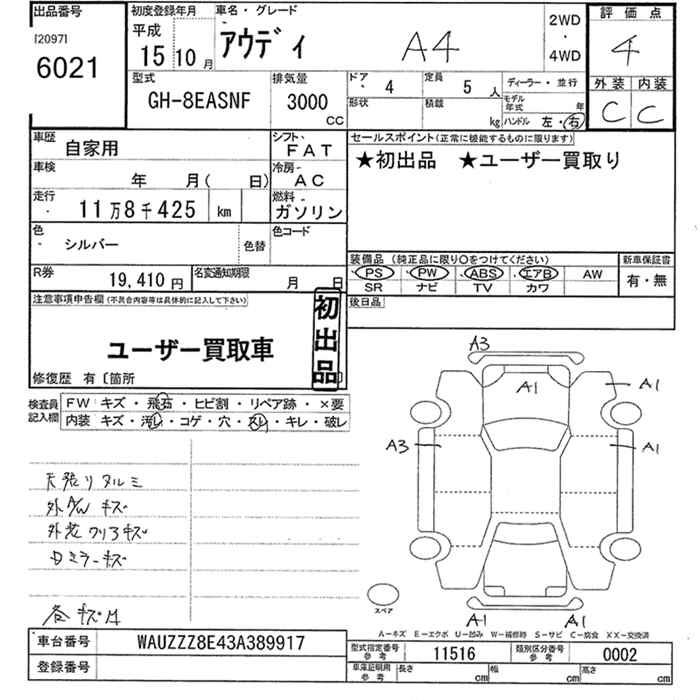 出品番号
[2097]
6021
初度登録年月
平成
15 10 月
車名・グレード
アウディ A4
2WD
・
4WD
評価点
4
外装 内装
C C
型式
GH-8EASNF
排気量
3000
CC
ドア 4
定員 5 人
ディーラー・並行
形状
積載 kg
モデル年式 年
ハンドル 左・右
車歴 自家用
シフト FAT
車検 年 月( 日)
冷房 AC
走行 11万8千425 km
燃料 ガソリン
色 シルバー
色替
色コード
R券 19,410 円
名変通知期限 月 日
セールスポイント(正常に機能するものに限ります)
★初出品 ★ユーザー買取り
装備品 (純正品に限り○をつけてください)
新車保証書
PS PW ABS エアB AW
SR ナビ TV カワ
有・無
後日品
注意事項申告欄(不具合内容等は具体的に記入して下さい)
初出品
ユーザー買取車
修復歴 有〔箇所
検査員記入欄
FW キズ・飛石・ヒビ割・リペア跡・×要
内装 キズ・汚レ・コゲ・穴・スレ・キレ・破レ
天張りタルミ
キズ
外装クリアキズ
Dミラーキズ
各キズ
A3
A1
A1
A3
A1
A1
A1
スペア
A-キズ E-エクボ U-凹み W-補修跡 S-サビ C-腐食 XX-交換済
車台番号 WAUZZZ8E43A389917
登録番号
型式指定番号 参考 11516
類別区分番号 参考 0002
車庫証明用 参考 長さ cm 幅 cm 高さ cm